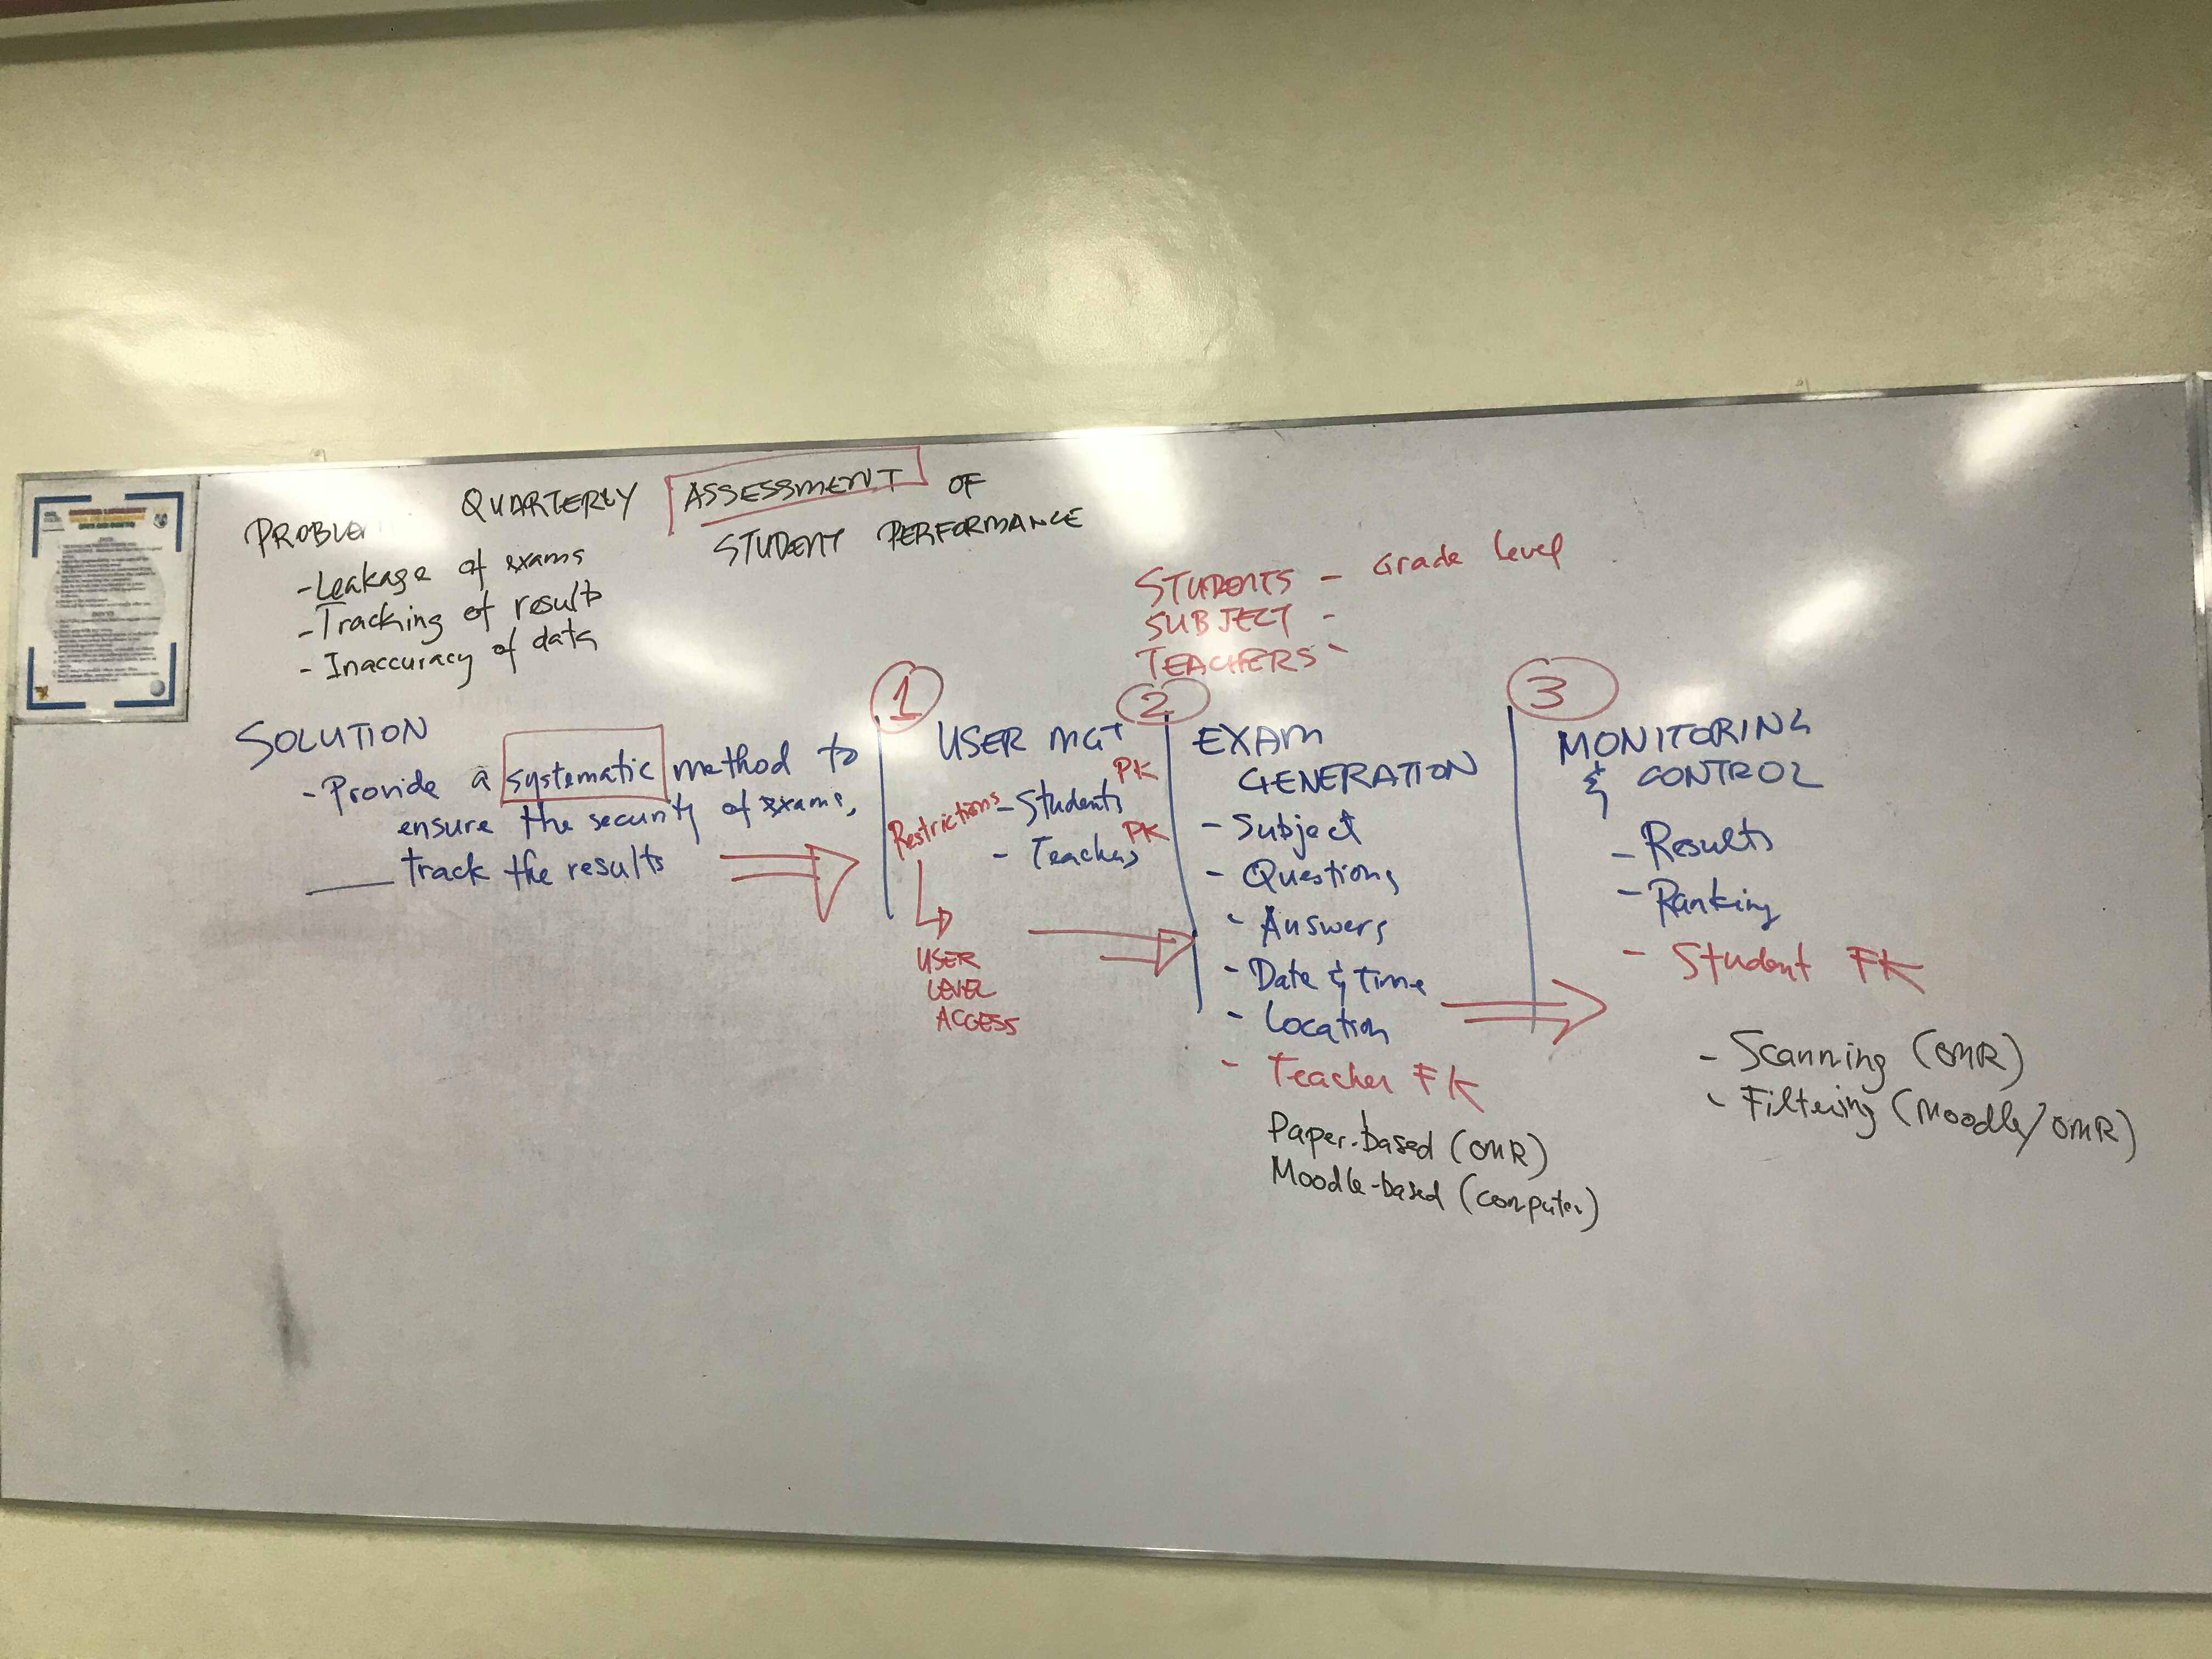 QUARTERLY ASSESSMENT OF
STUDENT PERFORMANCE
PROBLE
- Leakage of exams
- Tracking of results
- Inaccuracy of data
STUDENTS - Grade level
SUBJECT -
TEACHERS -
SOLUTION
- Provide a systematic method to
ensure the security of exams,
track the results
1
USER MGT
Restrictions - Students PK
- Teachers PK
USER
LEVEL
ACCESS
2
EXAM
GENERATION
- Subject
- Questions
- Answers
- Date & Time
- Location
- Teacher FK
Paper-based (OMR)
Moodle-based (computer)
3
MONITORING
& CONTROL
- Results
- Ranking
- Student FK
- Scanning (OMR)
- Filtering (Moodle/OMR)